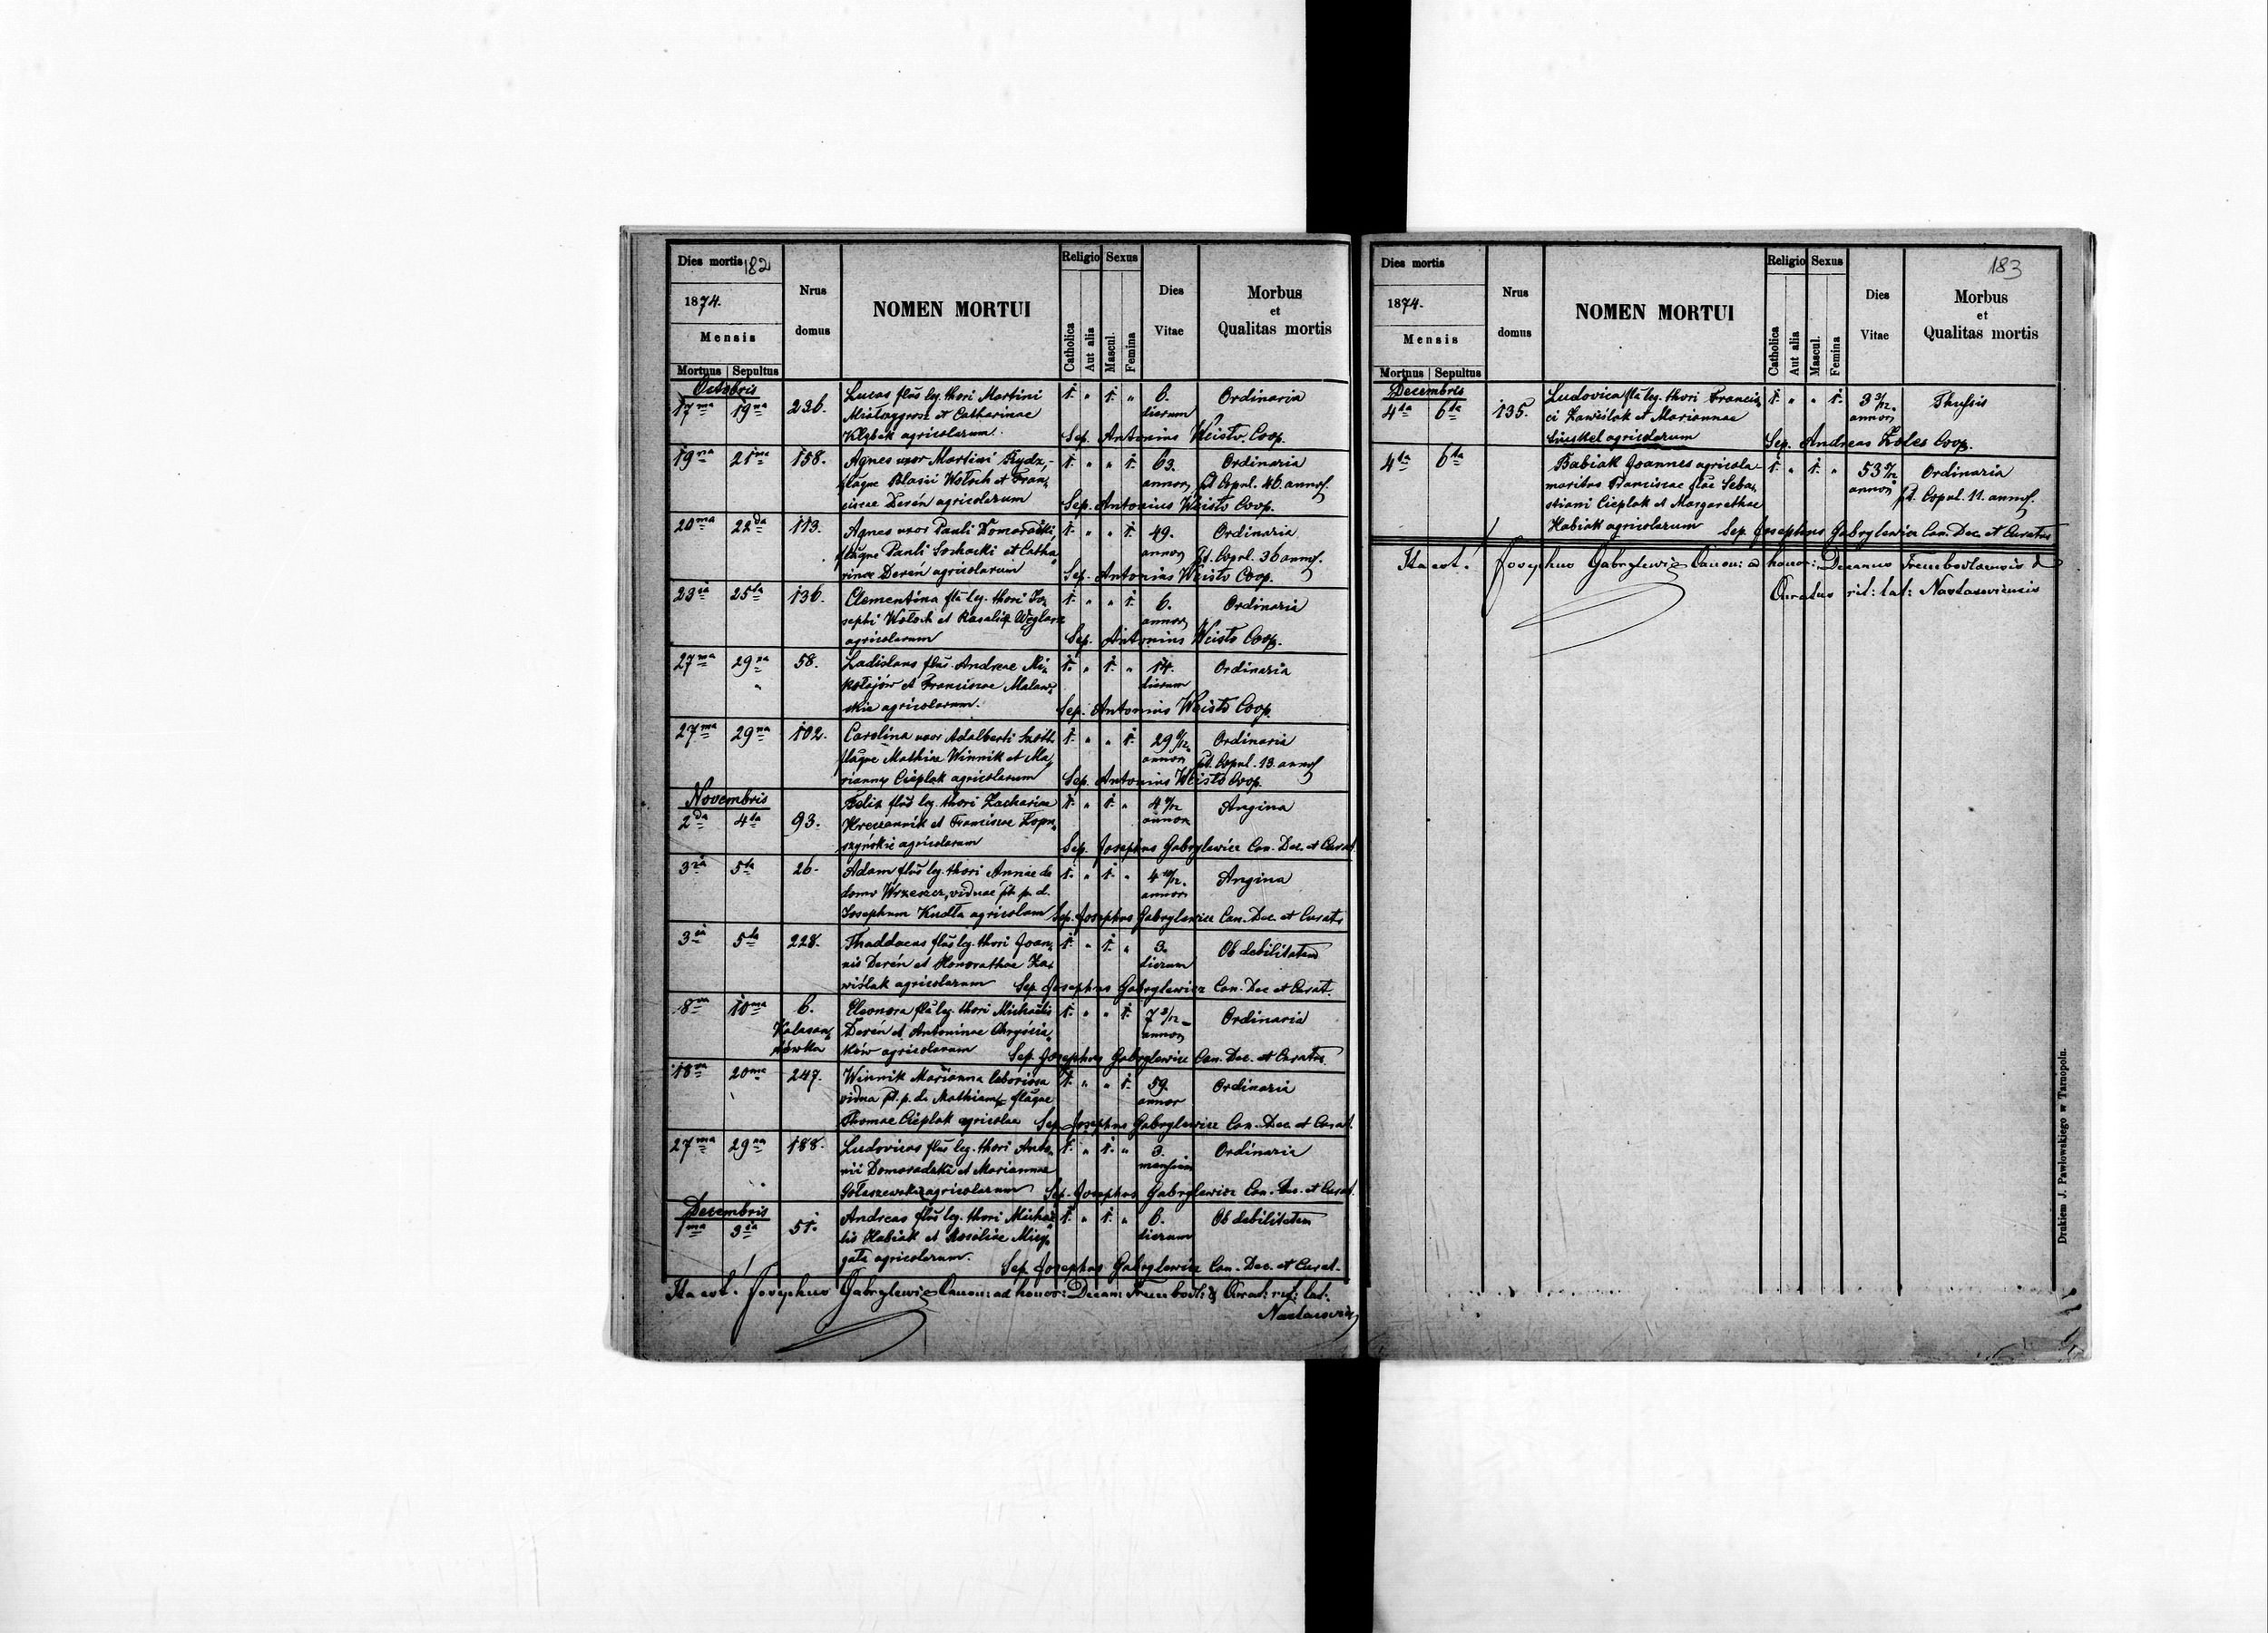 Dies mortis 182
1874.
Mensis
Mortuus Sepultus
Nrus domus
NOMEN MORTUI
Religio Sexus
Catholica Aut alia Mascul. Femina
Dies Vitae
Morbus et Qualitas mortis
Octobris
17ma 19na 236. Lucas flus leg. thori Martini 1. " 1. " 6. Ordinaria
et Catharinae dierum
agricolarum. Sep. Antonius Weistv. Coop.
19na 21ma 158. Agnes uxor Martini Rydz, 1. " " 1. 63. Ordinaria
flaque Blasii Wołoch et Fran, annor pt Copul. 46. annos.
ciscae Dereń agricolarum Sep. Antonius Weistv Coop.
20ma 22da 113. Agnes uxor Pauli Domoracki, 1. " " 1. 49. Ordinaria
flaque Pauli Sochacki et Catha annor pt. Copul. 36 annos.
rinae Dereń agricolarum Sep. Antonius Weistv Coop.
23ia 25ta 136. Clementina fla leg. thori Jo, 1. " " 1. 6. Ordinaria
sephi Wołoch et Rosalia Węglarz annor
agricolarum Sep. Antonius Weistv Coop.
27ma 29na 58. Ladislaus flus Andreae Mi, 1. " 1. " 14. Ordinaria
kołajów et Franciscae Malaw, dierum
skie agricolarum. Sep. Antonius Weistv Coop.
27ma 29na 102. Carolina uxor Adalberti 1. " " 1. 29 6/12 Ordinaria
flaque Mathiae Winnik et Ma, annor pt. Copul. 13. annos
rianny Cieplak agricolarum Sep. Antonius Weistv Coop.
Novembris
2da 4ta 93. Felix flus leg. thori Zachariae 1. " 1. " 4 Angina
Hreczannik et Franciscae Kopu, annor
szyńskie agricolarum Sep. Josephus Gabrylewicz Can. Dec. et Curat.
3ia 5ta 26. Adam flus leg. thori Annae de 1. " 1. " 4 10/12. Angina
domo Wrzeszcz, viduae pt. p. d. annor
Josephum Kudła agricolam Sep. Josephus Gabrylewicz Can. Dec. et Curatus
3ia 5ta 228. Thaddaeus flus leg. thori Joan, 1. " 1. " 3. Ob debilitatem
nis Dereń et Honorathae Za, dierum
wiślak agricolarum Sep. Josephus Gabrylewicz Can. Dec et Curat.
8va 10ma 6. Eleonora fla leg. thori Michaelis 1. " " 1. 7 3/12 Ordinaria
Kalasan, Dereń et Antoninae Chryścia annor
tówka ków agricolarum Sep. Josephus Gabrylewicz Can. Dec. et Curatus
18va 20ma 247. Winnik Marianna laboriosa 1. " " 1. 59. Ordinaria
vidua pt. p. d. Mathiam flaque annor
Thomae Cieplak agricolae Sep. Josephus Gabrylewicz Can. Dec. et Curat.
27ma 29na 188. Ludovicus flus leg. thori Anto, 1. " 1. " 3. Ordinaria
nii Domoradzki et Mariannae mensium
Gołaszewska agricolarum Sep. Josephus Gabrylewicz Can. Dec. et Curat.
Decembris
1ma 3ia 51. Andreas flus leg. thori Micha 1. " 1. " 6. Ob debilitatem
lis Habiak et Rosaliae Mary, dierum
gała agricolarum. Sep. Josephus Gabrylewicz Can. Dec. et Curat.
Ita est. Josephus Gabrylewicz Canon: ad honor: Decan: Trembowl: & Curat: rit: lat.
Nastasoviens
Dies mortis
1874.
Mensis
Mortuus Sepultus
Nrus domus
NOMEN MORTUI
Religio Sexus
Catholica Aut alia Mascul. Femina
Dies Vitae
183
Morbus et Qualitas mortis
Decembris
4ta 6ta 135. Ludovica fla leg. thori Francis, 1. " " 1. 3 Thussis
ci Zawiślak et Mariannae annor
agricolarum Sep. Andreas Coop.
4ta 6ta Babiak Joannes agricola 1. " 1. " 53 Ordinaria
maritus Franciscae flae Seba, annor pt. Copul. 11. annos.
stiani Cieplak et Margarethae
Habiak agricolarum Sep. Josephus Gabrylewicz Can. Dec. et Curatus
Ita est. Josephus Gabrylewicz Canon: ad honor: Decanus Trembovlaensis &
Curatus rit: lat: Nastasoviensis
Drukiem J. Pawłowskiego w Tarnopolu.